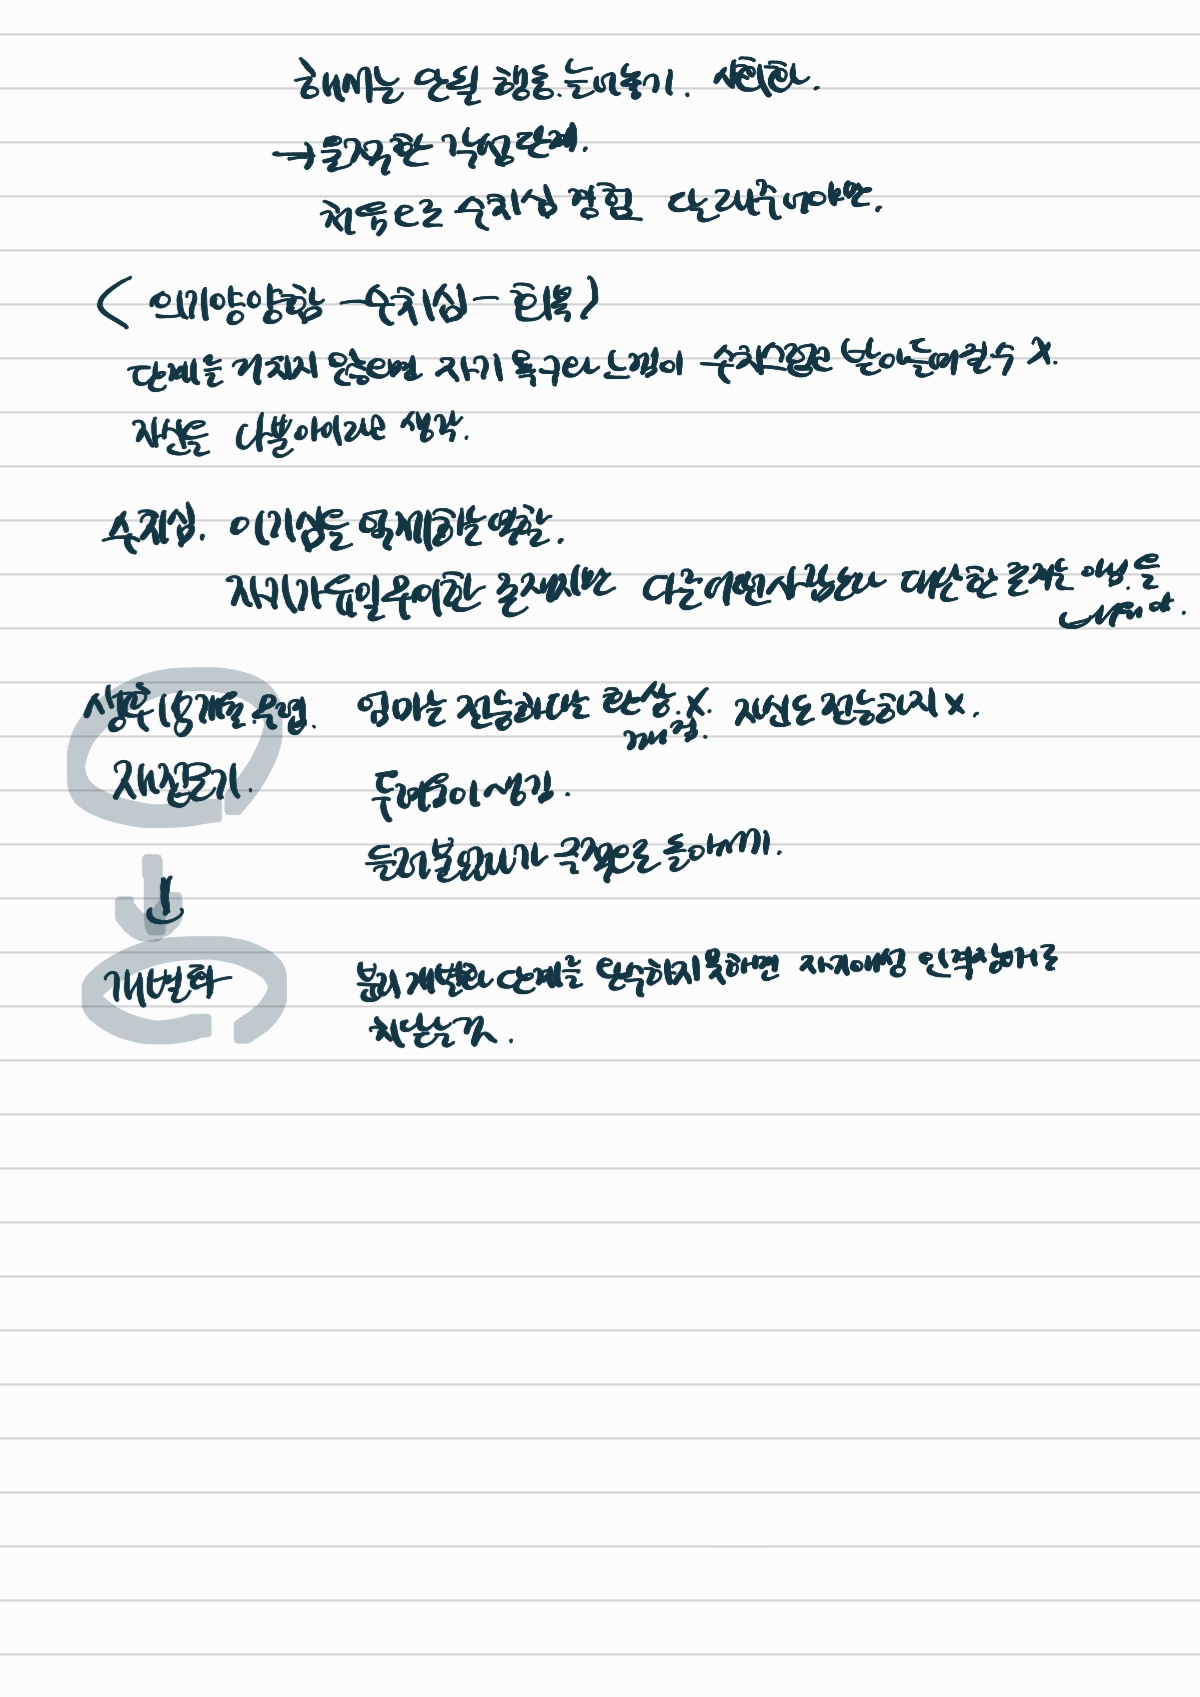 해서는 안될 행동. 늘어놓기. 사회화.
→ 울적한 각성단계.
처음으로 수치심 경험 달래주어야만.
( 의기양양함 - 수치심 - 회복 )
단계를 거치지 않으면 자기 욕구와 느낌이 수치스럽고 받아들여질수 X.
자신을 나쁜아이라고 생각.
수치심. 이기심을 억제하는 역할.
자기가 유일무이한 존재지만 다른 어떤사람보다 대단한 존재는 아님.을
배워야.
생후 18개월 무렵. 엄마는 전능하다는 환상.X. 자신도 전능하지 X.
깨짐.
재접근기. 두려움이 생김.
들러붙었다가 극적으로 돌아서기.
↓
개별화 분리 개별화 단계를 완수하지 못하면 자기애성 인격장애로
치닫는 것.